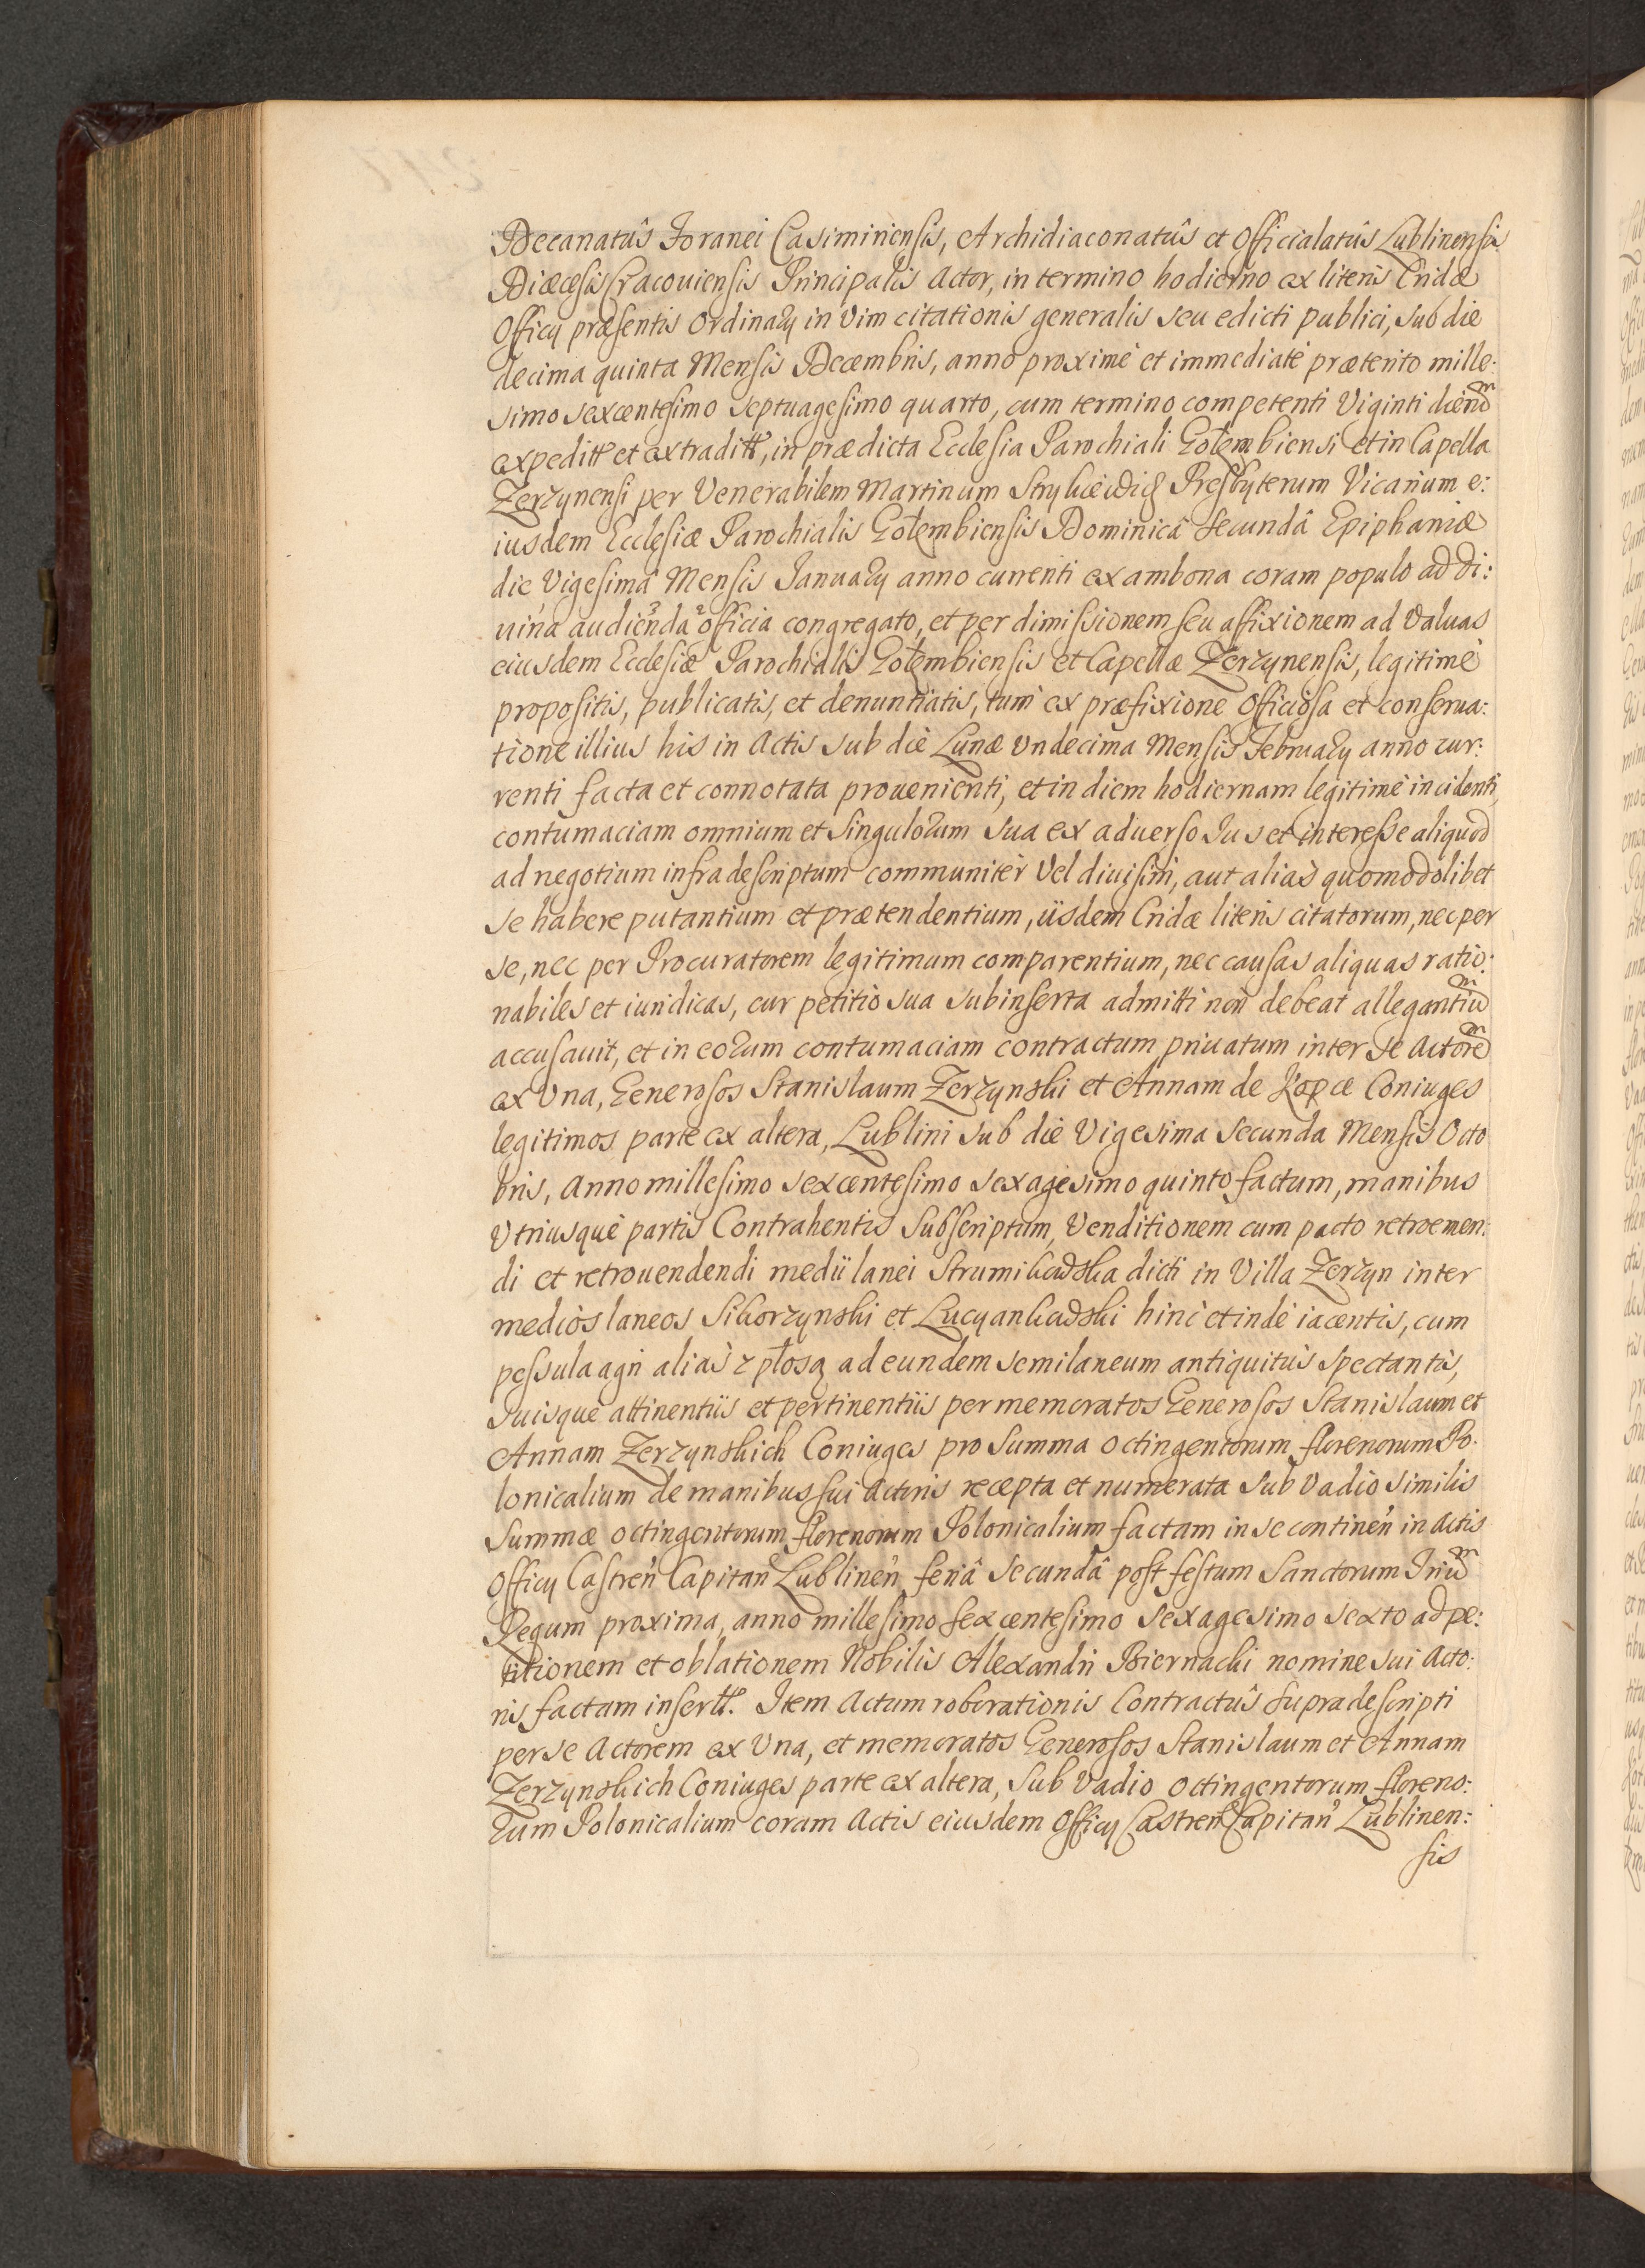 Decanatûs Foranei Casimiriensis, Archidiaconatûs et Officialatûs Lublinensis
Diæcesis Cracouiensis Principalis Actor, in termino hodierno ex literis Cridæ
Officij præsentis Ordinarij in vim citationis generalis seu edicti publici, sub die
decima quinta Mensis Decembris, anno proximè et immediatè præterito mille:
simo sexcentesimo septuagesimo quarto, cum termino competenti Viginti dierũ
expeditt et extraditt, in prædicta Ecclesia Parochiali Gołembiensi et in Capella
Zerzynensi per Venerabilem Martinum Presbyterum Vicarium e:
iusdem Ecclesiæ Parochialis Gołembiensis Dominicâ secundâ Epiphaniæ
die Vigesimâ Mensis Januarij anno currenti ex ambona coram populo ad di:
uina audienda officia congregato, et per dimissionem seu affixionem ad Valuas
eiusdem Ecclesiæ Parochialis Gołembiensis et Capellæ Zerzynensis, legitimè
propositis, publicatis, et denuntiatis, tum ex præfixione Officiosa et conserua:
tione illius his in Actis sub die Lunæ Vndecima Mensis Februarij anno cur:
renti facta et connotata prouenienti, et in diem hodiernam legitimè incidenti,
contumaciam omnium et singulorum sua ex aduerso Jus et interesse aliquod
ad negotium infradescriptum communiter Vel diuisim, aut alias quomodolibet
se habere putantium et prætendentium, iisdem Cridæ literis citatorum, nec per
se, nec per Procuratorem legitimum comparentium, nec causas aliquas ratio:
nabiles et iuridicas, cur petitio sua subinserta admitti non debeat allegantiũ
accusauit, et in eorum contumaciam contractum priuatum inter se Actorẽ
ex Vna, Generosos Stanislaum Zerzynski et Annam de Kopce Coniuges
legitimos parte ex altera, Lublini sub die Vigesima secunda Mensis Octo
bris, Anno millesimo sexcentesimo sexagesimo quinto factum, manibus
Vtriusque partis Contrahentis subscriptum, Venditionem cum pacto retroemen:
di et retrouendendi medii lanei Strumikowska dicti in Villa Zerzyn inter
medios laneos Sikorzynski et Lucyankowski hinc et inde iacentis, cum
pessula agri alias z płosą ad eundem semilaneum antiquitus spectantis,
suisque attinentiis et pertinentiis per memoratos Generosos Stanislaum et
Annam Zerzynskich Coniuges pro Summa octingentorum florenorum Po:
lonicalium de manibus sui Actoris recepta et numerata sub Vadio similis
summæ octingentorum florenorum Polonicalium factam in se continen̉ in Actis
Officij Castren̉ Capitan̉ Lublinen̉ feriâ secundâ post festum Sanctorum Triũ
Regum proxima, anno millesimo sexcentesimo sexagesimo sexto ad pe:
titionem et oblationem Nobilis Alexandri Biernacki nomine sui Acto:
ris factam insertt. Item Actum roborationis Contractûs supradescripti
per se Actorem ex Vna, et memoratos Generosos Stanislaum et Annam
Zerzynskich Coniuges parte ex altera, sub Vadio octingentorum floreno:
rum Polonicalium coram Actis eiusdem Officij Castren̉ Capitan̉ Lublinen:
sis